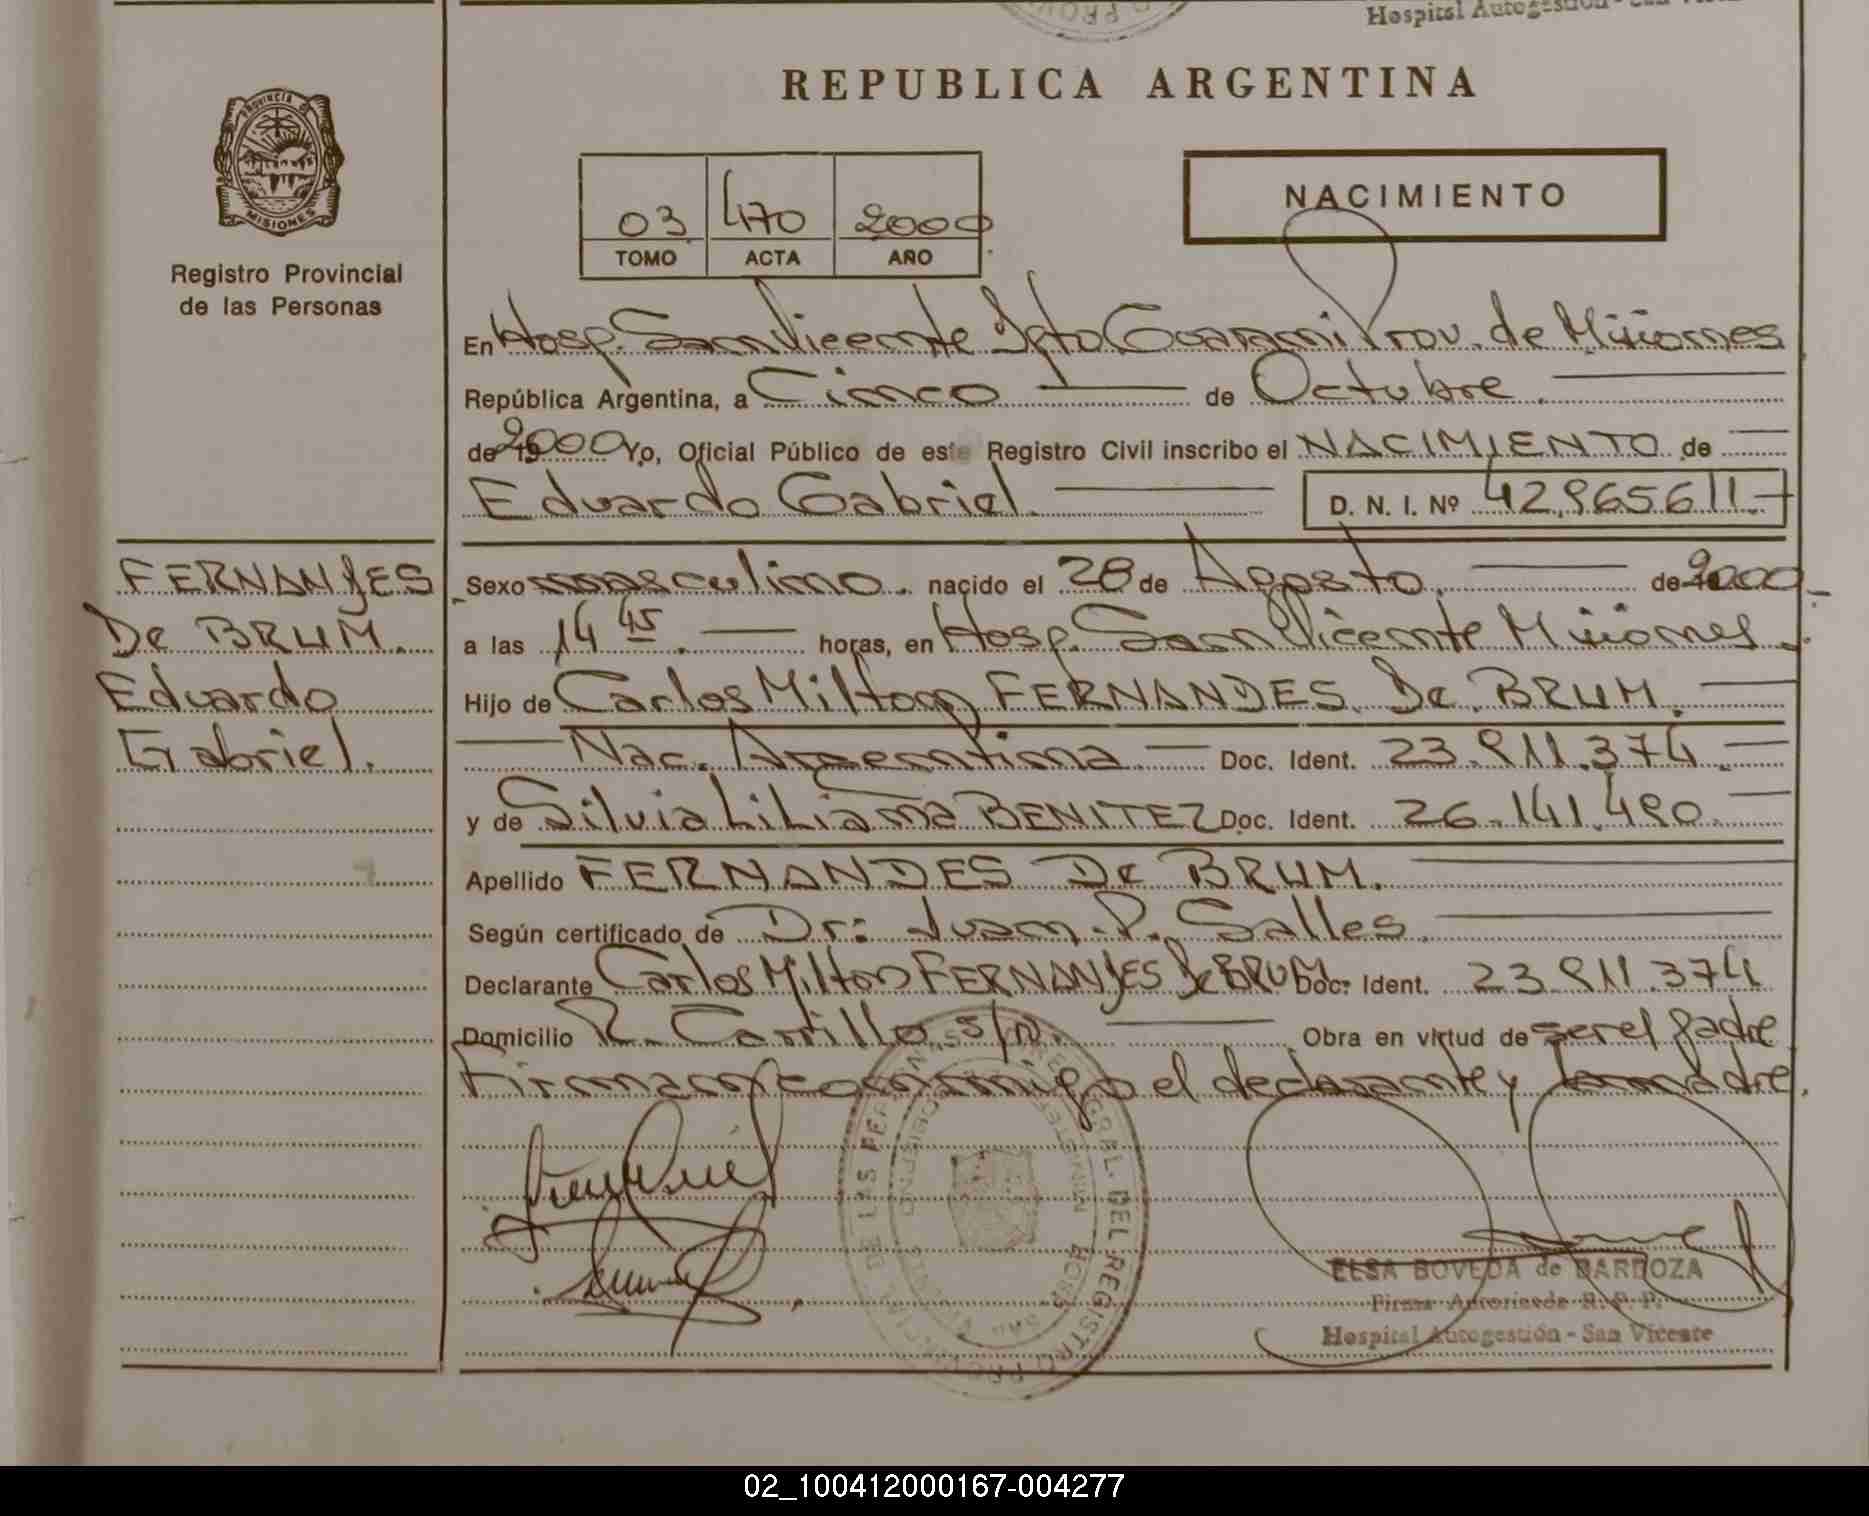 Hospital Autogestión - San Vicente
REPUBLICA ARGENTINA
PROVINCIA DE
MISIONES
Registro Provincial
de las Personas
03 470 2000
TOMO ACTA AÑO
NACIMIENTO
En Hosp. San Vicente Dpto Guarani Prov. de Misiones
República Argentina, a Cinco de Octubre
de 2000 Yo, Oficial Público de este Registro Civil inscribo el NACIMIENTO de
Eduardo Gabriel. D. N. I. Nº 42.965611.-
FERNANDES
De BRUM.
Eduardo
Gabriel.
Sexo masculino. nacido el 28 de Agosto. de 2000.-
a las 14 45. horas, en Hosp. San Vicente Misiones.
Hijo de Carlos Milton FERNANDES De BRUM.
Nac. Argentina Doc. Ident. 23.911.374.
y de Silvia Liliana BENITEZ Doc. Ident. 26.141.490.
Apellido FERNANDES De BRUM.
Según certificado de Dr: Juan P. Salles
Declarante Carlos Milton FERNANDES De BRUM Doc. Ident. 23.911.374
Domicilio R. Carrillo s/n. Obra en virtud de ser el padre
Firman conmigo el declarante y la madre.
ELSA BOVEDA de BARBOZA
Firma Autorizada R. P. P.
Hospital Autogestión - San Vicente
02_100412000167-004277